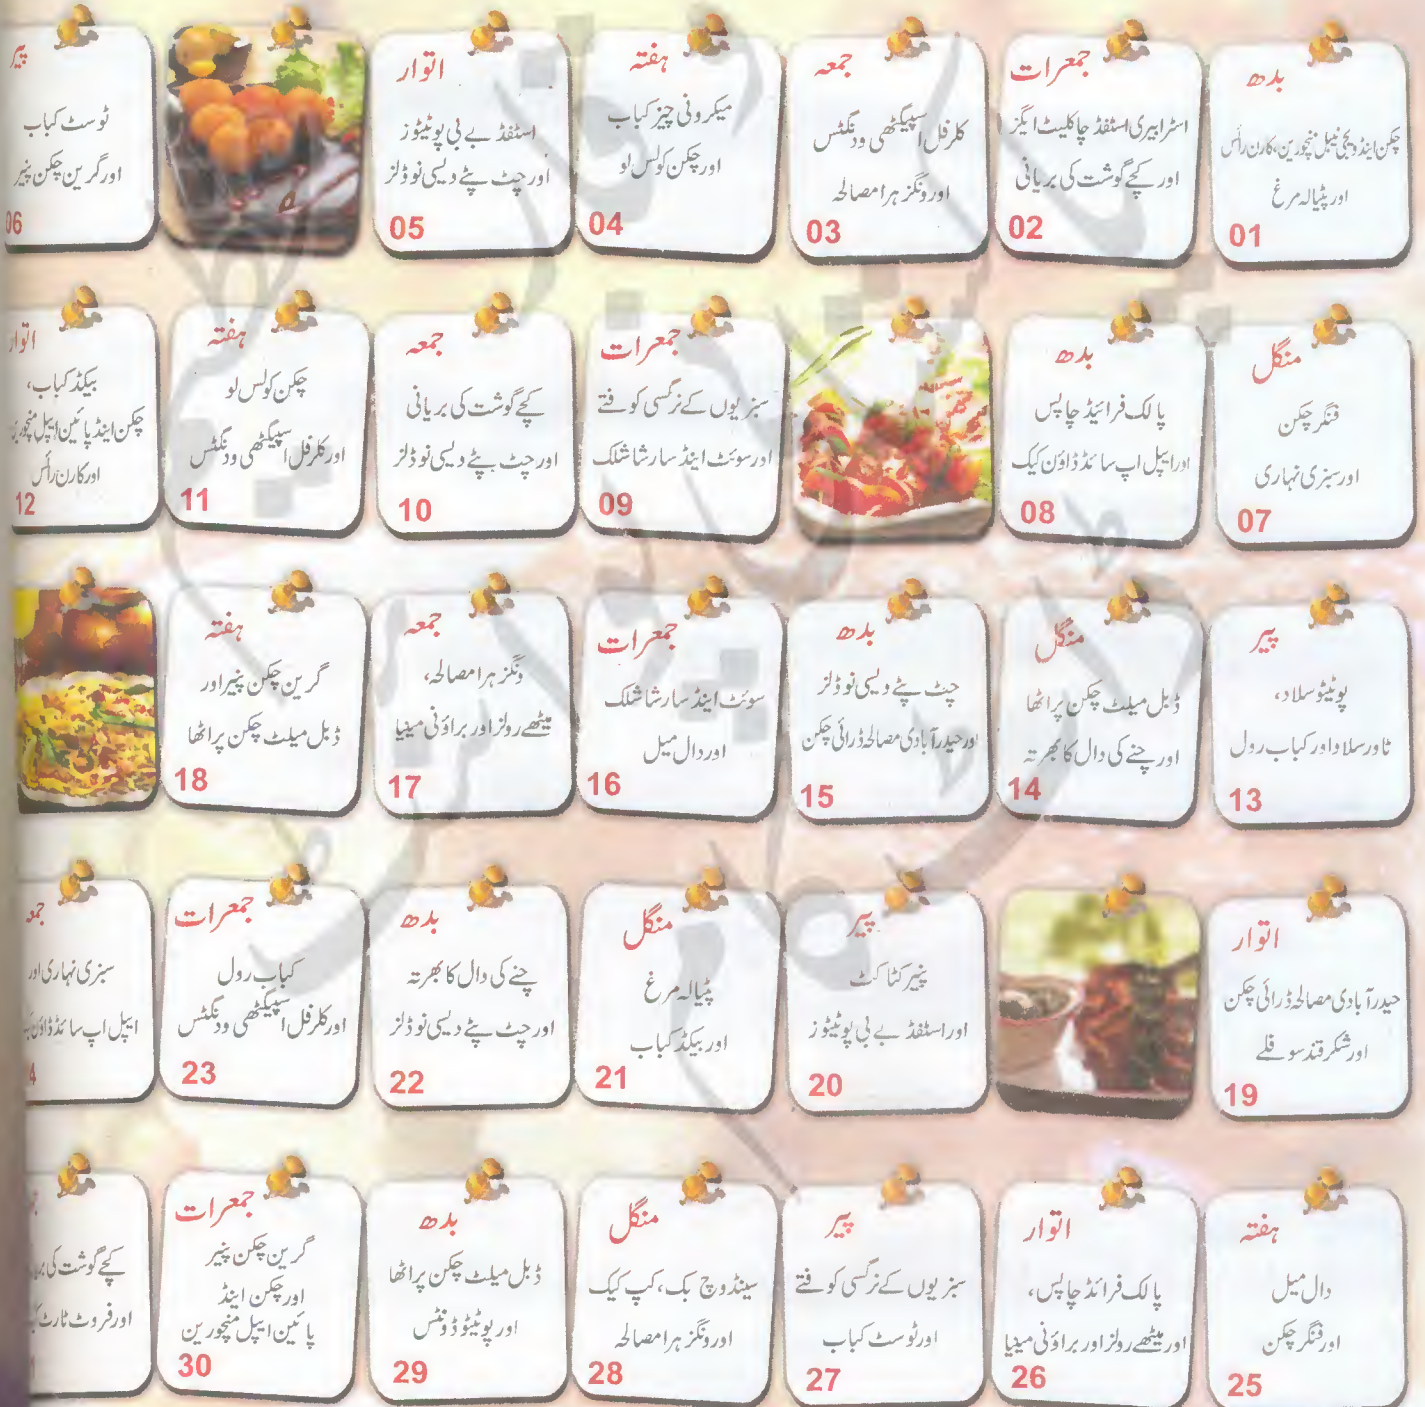 بدھ
چکن اینڈ ویجی ٹیبل منچورین، کارن رائس
اور پٹیالہ مرغ
01
جمعرات
اسٹرابیری اسٹفڈ چاکلیٹ ایگز
اور کچے گوشت کی بریانی
02
جمعہ
کلرفل اسپیگٹھی ود نگٹس
اور ونگز ہرا مصالحہ
03
ہفتہ
میکرونی چیز کباب
اور چکن کولس لو
04
اتوار
اسٹفڈ بے بی پوٹیٹوز
اور چٹ پٹے دیسی نوڈلز
05
پیر
ٹوسٹ کباب
اور گرین چکن پنیر
06
منگل
فنگر چکن
اور سبزی نہاری
07
بدھ
پالک فرائیڈ چاپس
اور ایپل اپ سائڈ ڈاؤن کیک
08
جمعرات
سبزیوں کے نرگسی کوفتے
اور سوئٹ اینڈ سار شاشلک
09
جمعہ
کچے گوشت کی بریانی
اور چٹ پٹے دیسی نوڈلز
10
ہفتہ
چکن کولس لو
اور کلرفل اسپیگٹھی ود نگٹس
11
اتوار
بیکڈ کباب،
چکن اینڈ پائین ایپل
اور کارن رائس
12
پیر
پوٹیٹو سلاد،
ٹاور سلاد اور کباب رول
13
منگل
ڈبل میلٹ چکن پراٹھا
اور چنے کی دال کا بھرتہ
14
بدھ
چٹ پٹے دیسی نوڈلز
اور حیدرآبادی مصالحہ ڈرائی چکن
15
جمعرات
سوئٹ اینڈ سار شاشلک
اور دال میل
16
جمعہ
ونگز ہرا مصالحہ،
میٹھے رولز اور براؤنی مینیا
17
ہفتہ
گرین چکن پنیر اور
ڈبل میلٹ چکن پراٹھا
18
اتوار
حیدرآبادی مصالحہ ڈرائی چکن
اور شکر قند سوفلے
19
پیر
پنیر کٹا کٹ
اور اسٹفڈ بے بی پوٹیٹوز
20
منگل
پٹیالہ مرغ
اور بیکڈ کباب
21
بدھ
چنے کی دال کا بھرتہ
اور چٹ پٹے دیسی نوڈلز
22
جمعرات
کباب رول
اور کلرفل اسپیگٹھی ود نگٹس
23
جمعہ
سبزی نہاری اور
ایپل اپ سائڈ ڈاؤن
4
ہفتہ
دال میل
اور فنگر چکن
25
اتوار
پالک فرائڈ چاپس،
اور میٹھے رولز اور براؤنی مینیا
26
پیر
سبزیوں کے نرگسی کوفتے
اور ٹوسٹ کباب
27
منگل
سینڈوچ بک، کپ کیک
اور ونگز ہرا مصالحہ
28
بدھ
ڈبل میلٹ چکن پراٹھا
اور پوٹیٹو ڈونٹس
29
جمعرات
گرین چکن پنیر
اور چکن اینڈ
پائین ایپل منچورین
30
کچے گوشت کی
اور فروٹ ٹارٹ